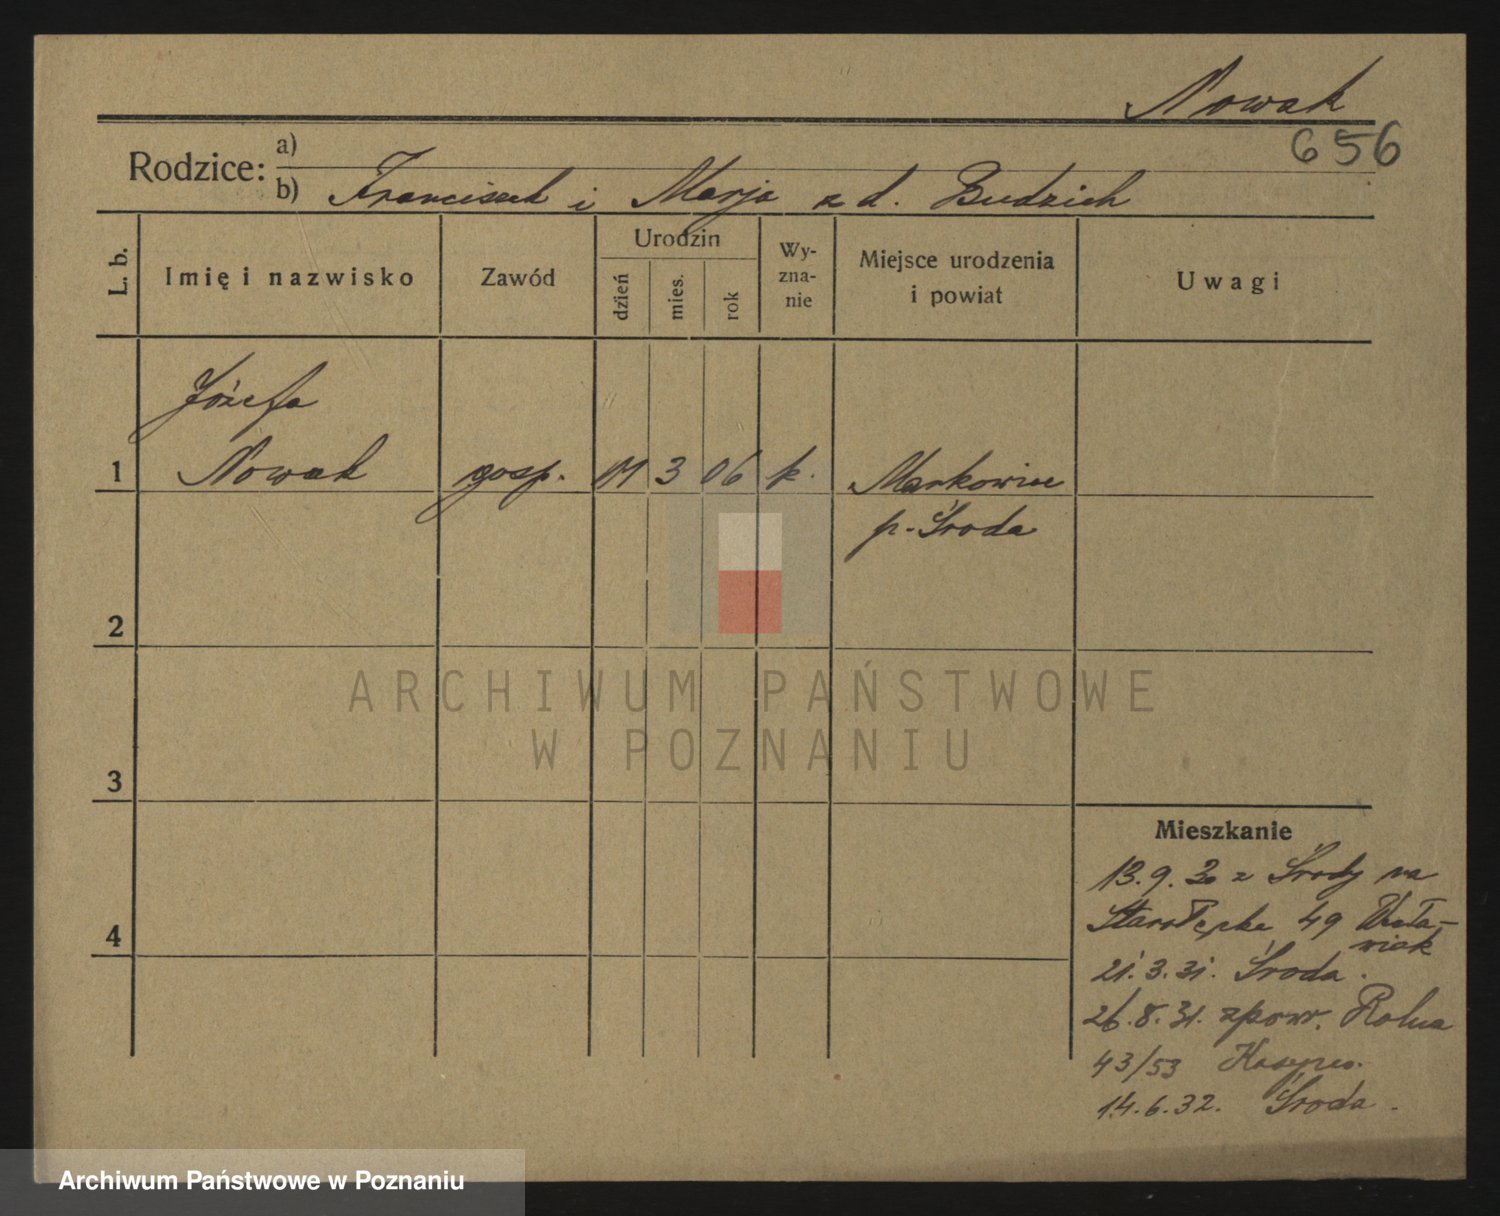 Nowak
656
Rodzice: a)
b) Franciszek i Marja z d. Budzich
L. b.
Imię i nazwisko
Zawód
Urodzin
dzień
mies.
rok
Wy-
zna-
nie
Miejsce urodzenia
i powiat
Uwagi
Józefa
1 Nowak gosp. 3 06 k. Markowice
p. Środa
2
ARCHIWUM PAŃSTWOWE
W POZNANIU
3
Mieszkanie
13.9.30 z Środy na
Starołęcka 49
21.3.31. Środa.
26.8.31. zpow. Rolna
43/53
4
14.6.32. Środa.
Archiwum Państwowe w Poznaniu